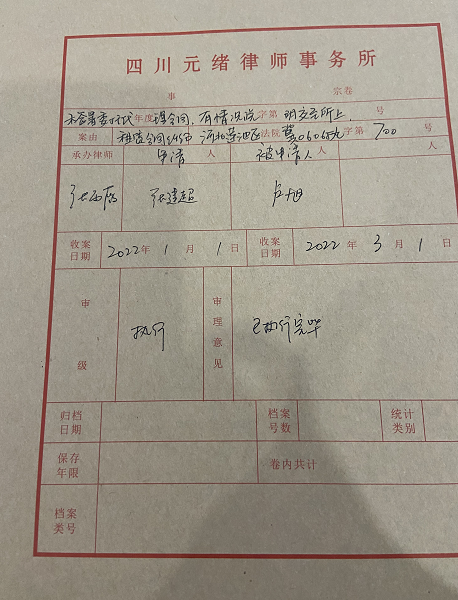 四川元绪律师事务所
事 宗卷
年度 合同,有情况说 字第 明交至所上, 号
案由 租赁合同纠纷 法院 字第 700 号
承办律师 申请 人 被申请人 人
张建超 卢旭
收案日期 2022年 1 月 1 日 收案日期 2022年 3 月 1 日
审级 执行 审理意见 已执行完毕
归档日期 档案号数 统计类别
保存年限 卷内共计
档案类号